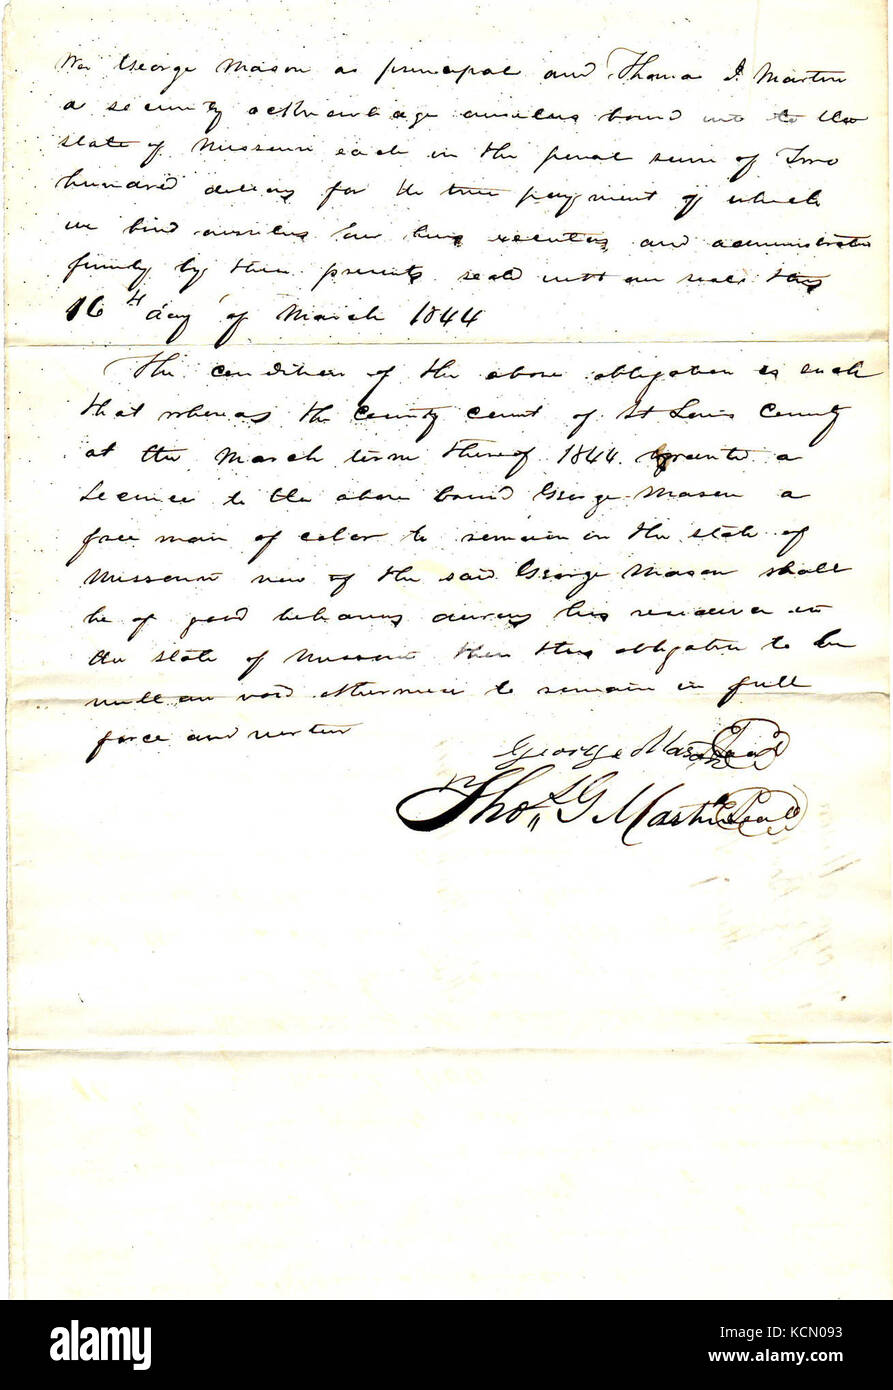 We George Mason as principal and Thomas J. Martin
as security acknowledge ourselves bound unto the
state of Missouri each in the penal sum of Two
hundred dollars for the true payment of which
we bind ourselves our heirs executors and administrators
firmly by these presents seald with our seals this
16th day of March 1844
The condition of the above obligation is such
that whereas the County Court of St Louis County
at the March term thereof 1844 granted a
License to the above bound George Mason a
free man of color to remain in the state of
Missouri now if the said George Mason shall
be of good behavior during his residence in
the state of Missouri then this obligation to be
null and void otherwise to remain in full
force and virtue
George Mason Seal
Thos G Martin Seal
alamy
Image ID: KCN093
www.alamy.com